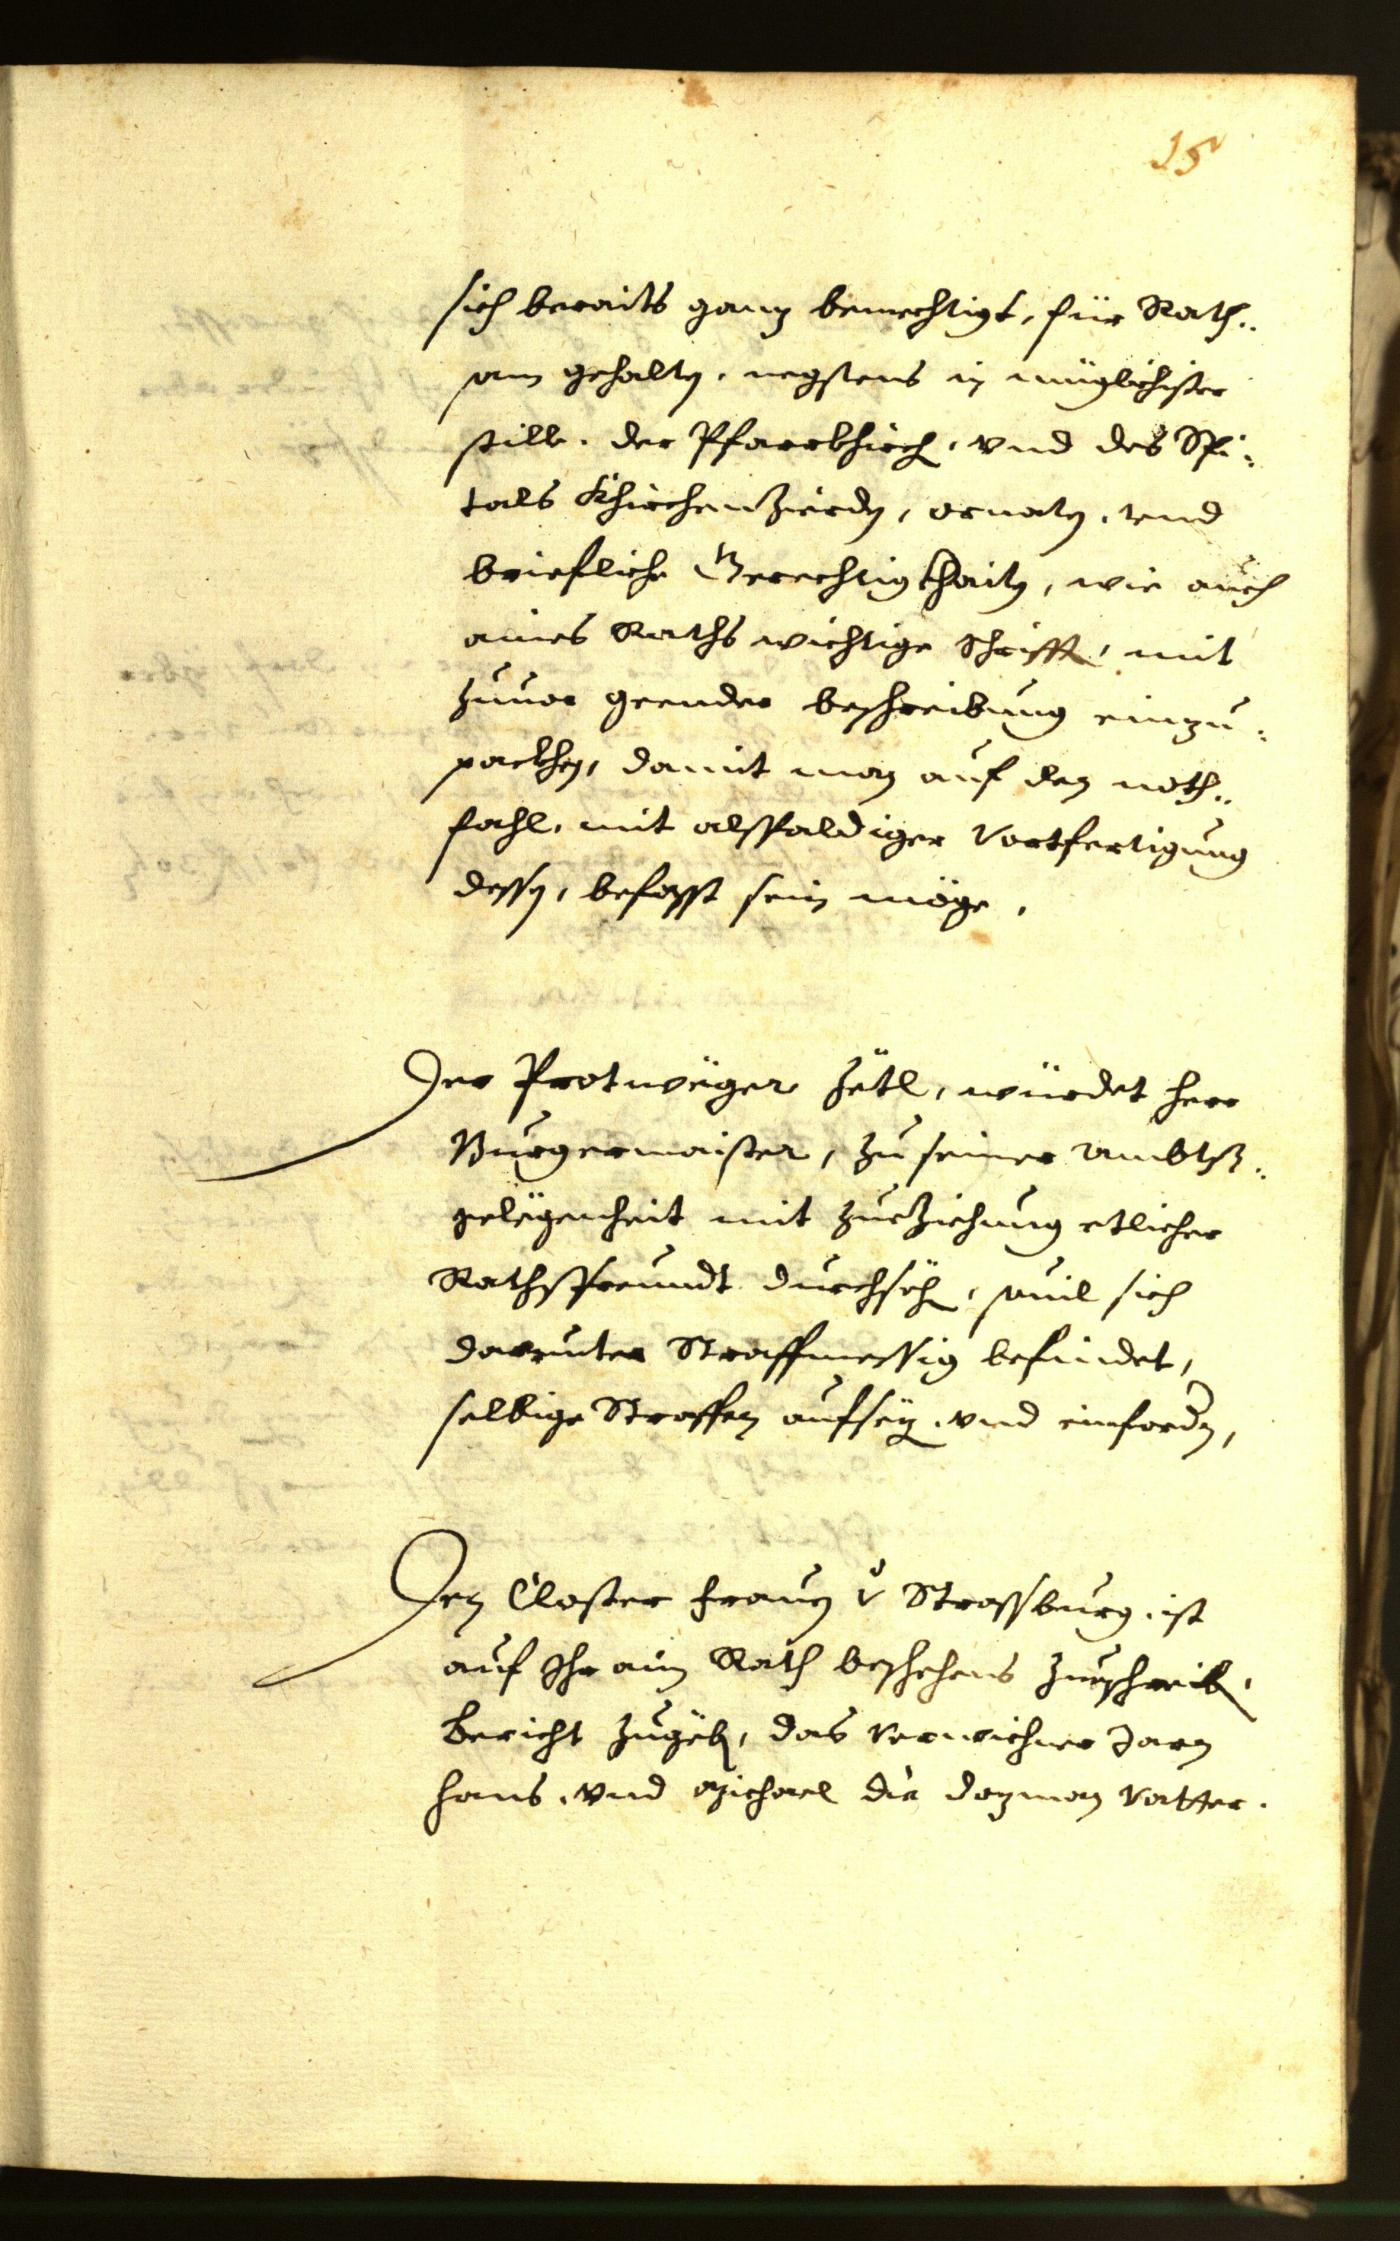 15
sich beraits ganz bemechtigt, für Rath¬
sam gehalten, negstens in müglichister
still, der Pfarrkhirch, vnd des Spi¬
tals Khirchenzierden, ornaten, vnd
briefliche Gerechtigkhaiten, wie auch
aines Raths wichtige Schrifften, mit
zuuor geender beschreibung einzu¬
packhen, damit man auf den noth¬
fahl, mit alspaldiger Vortfertigung
dessen, befasst sein möge.
Der Protwäger Zetl, würdet herr
Burgermaister, zu seiner Ambts¬
gelegenheit mit zueziehung etlicher
Rathsfreundt durchsehen, souil sich
darunter Straffmessig befindet,
selbige Straffen aufsezen, vnd einfordern,
Den Closter Frauen v Strassburg, ist
auf Ihr ain Rath beschehens zueschreiben,
bericht zugeben, das verwichner Jarn
Hans, vnd Michael die dazman Vatter.